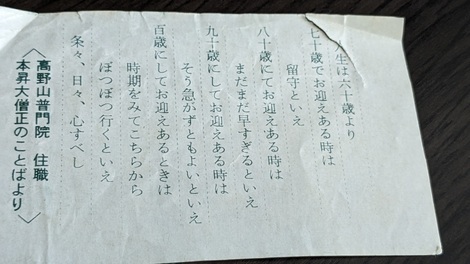 人生は六十歳より
七十歳でお迎えある時は
留守といえ
八十歳にてお迎えある時は
まだまだ早すぎるといえ
九十歳にしてお迎えある時は
そう急がずともよいといえ
百歳にしてお迎えあるときは
時期をみてこちらから
ぼつぼつ行くといえ
条々、日々、心すべし
〈高野山普門院 住職
本昇大僧正のことばより〉